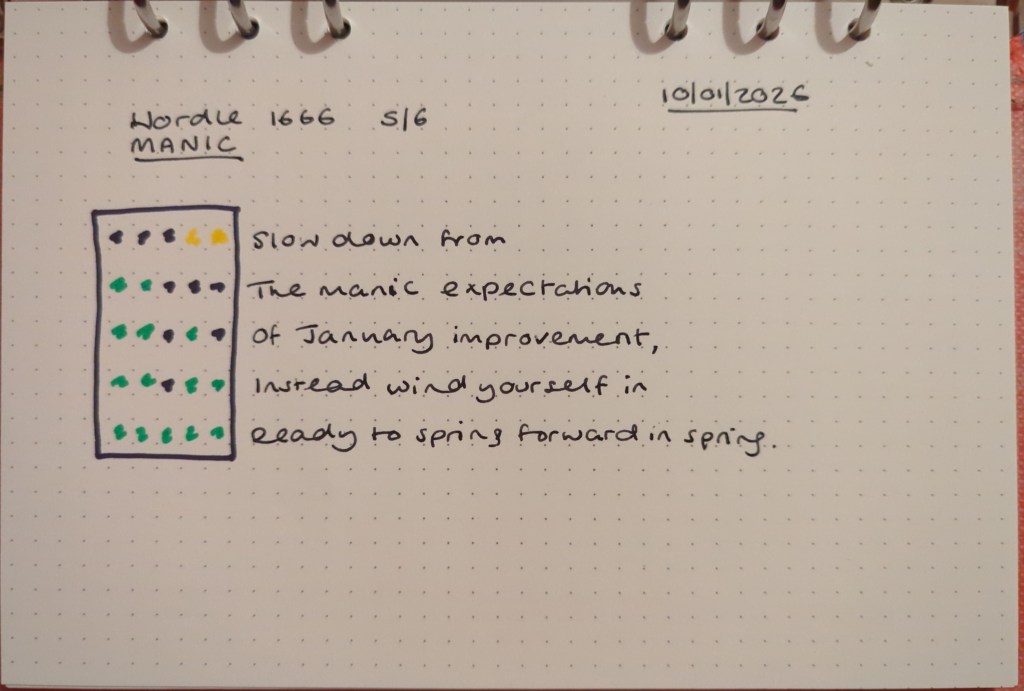 10/01/2026
Wordle 1666 5/6
MANIC
Slow down from
The manic expectations
Of January improvement,
Instead wind yourself in
Ready to spring forward in spring.